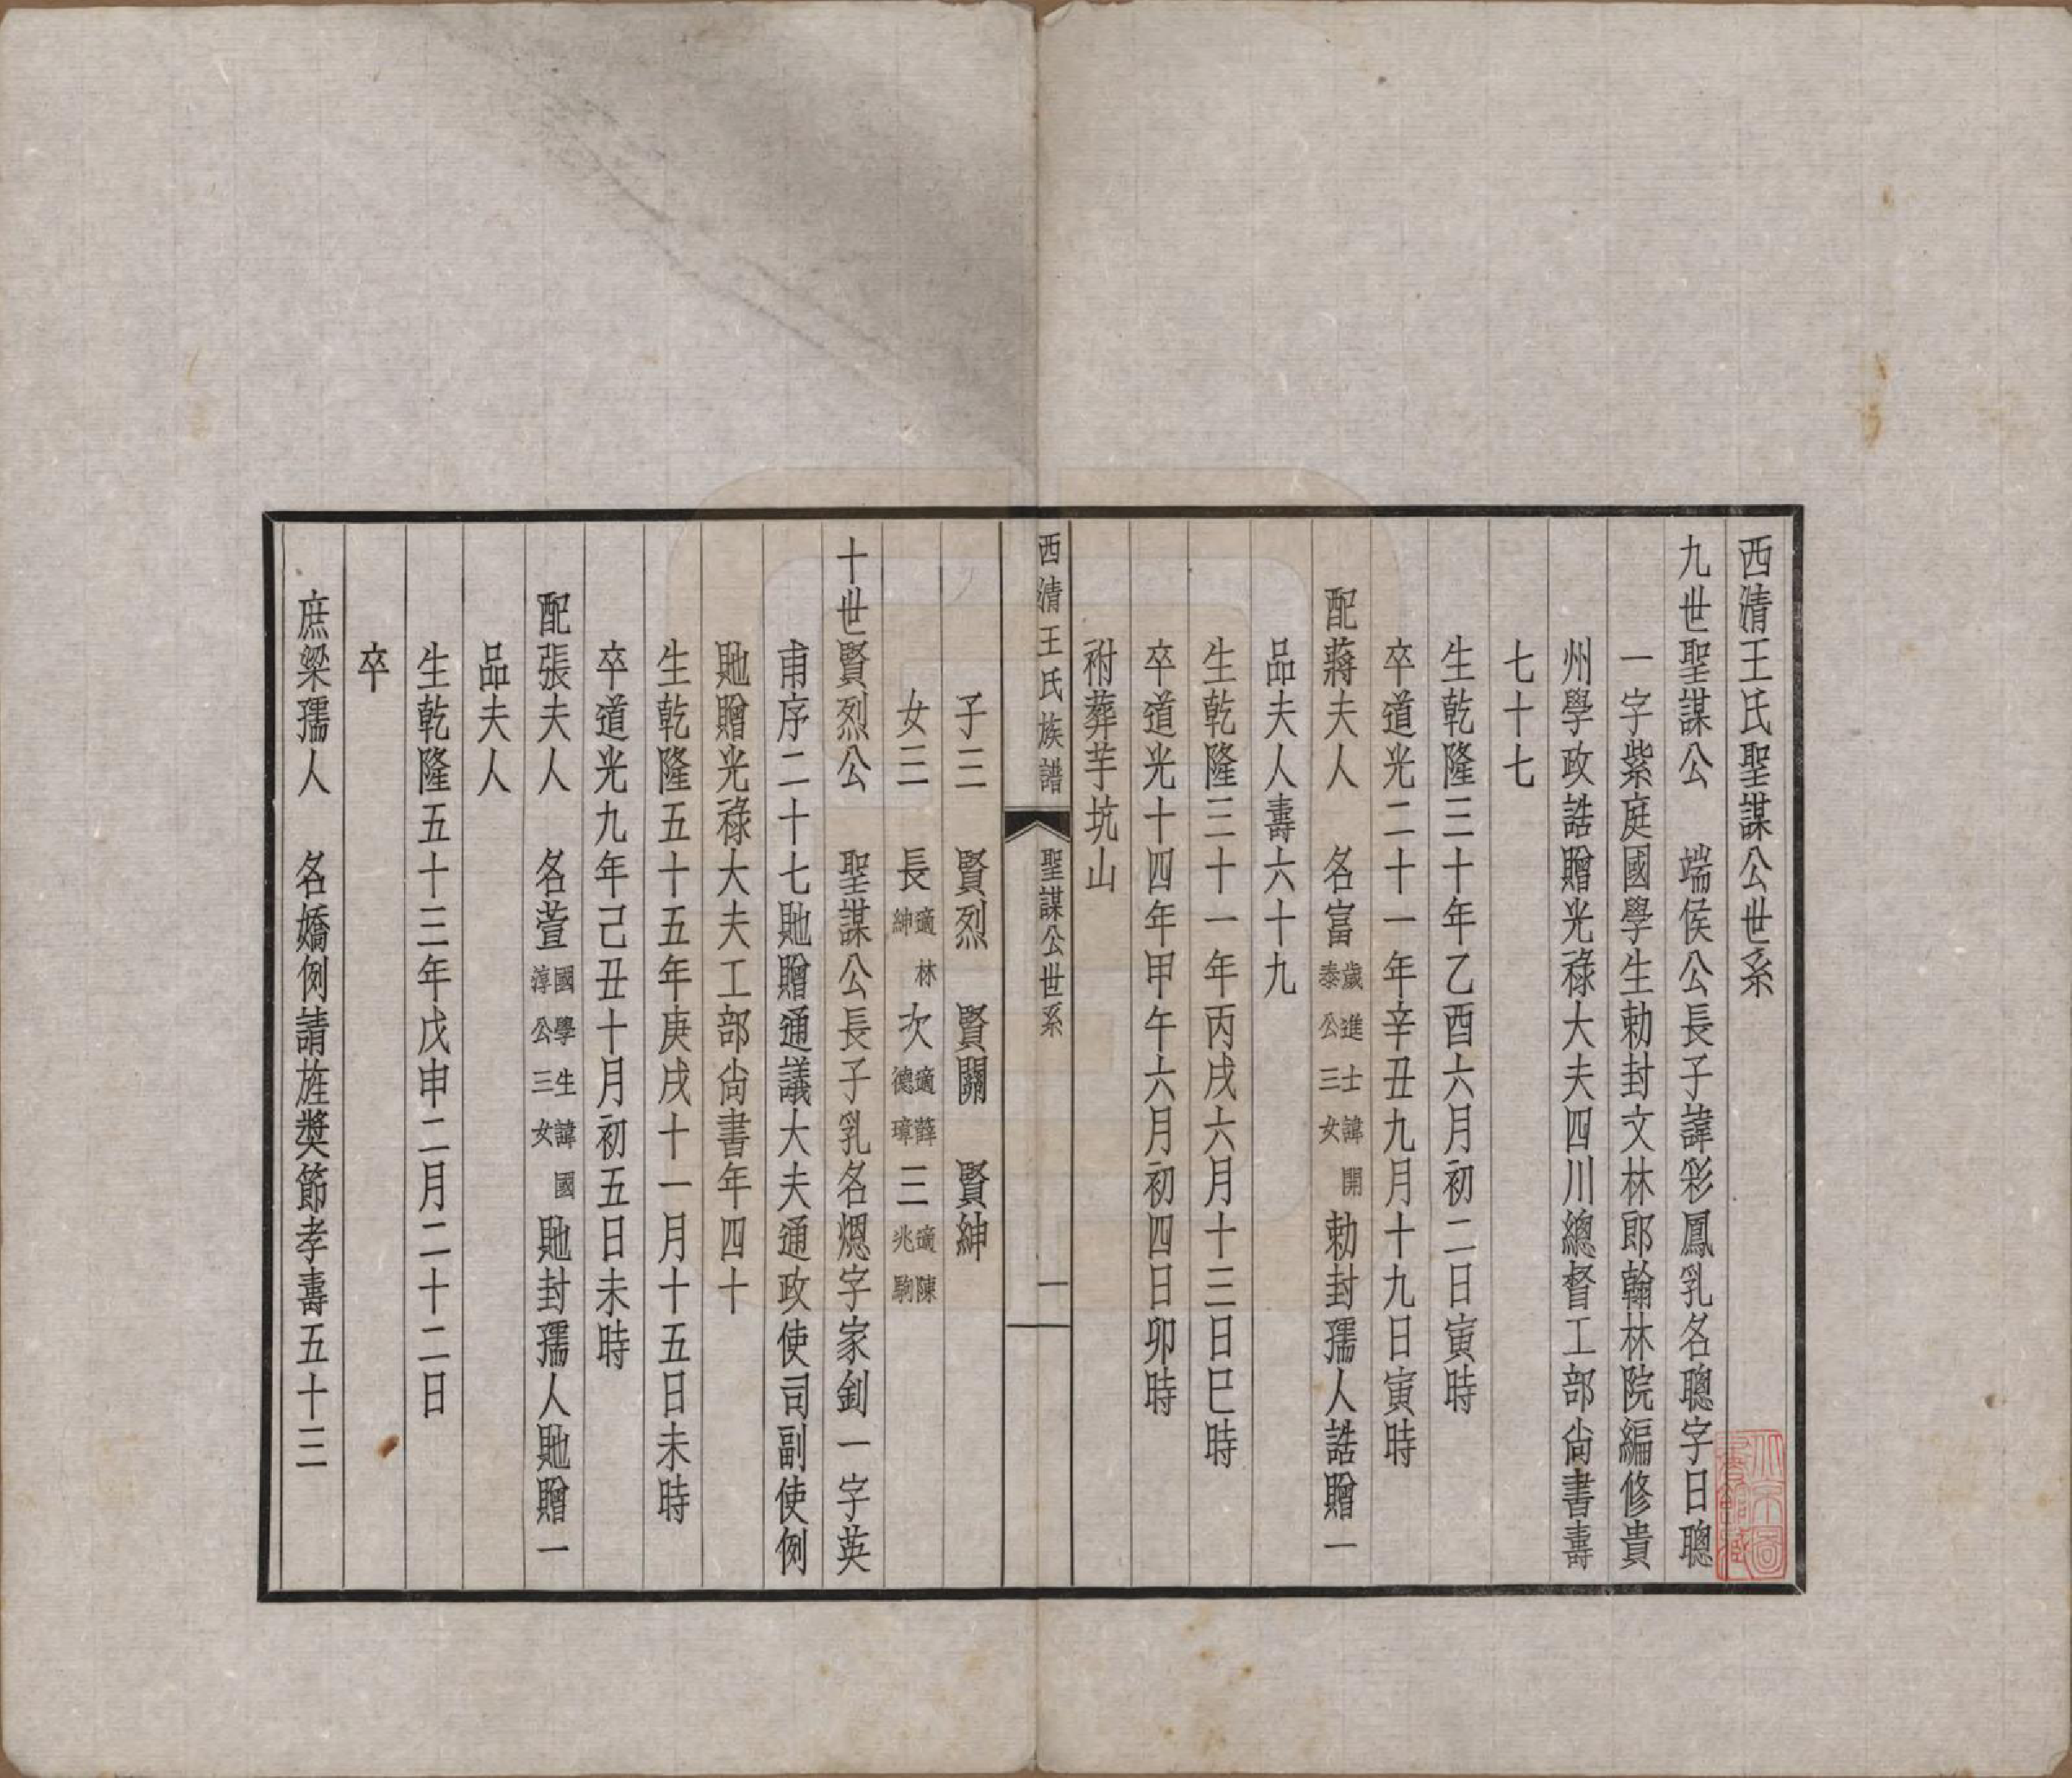 西清王氏聖謀公世系
九世聖謀公　端侯公長子諱彩鳳乳名聰字日聰
一字紫庭國學生勅封文林郎翰林院編修貴
州學政誥贈光祿大夫四川總督工部尙書壽
七十七
生乾隆三十年乙酉六月初二日寅時
卒道光二十一年辛丑九月十九日寅時
配蔣夫人　名富歲進士諱開泰公三女勅封孺人誥贈一
品夫人壽六十九
生乾隆三十一年丙戌六月十三日巳時
卒道光十四年甲午六月初四日卯時
祔葬芋坑山
西清王氏族譜　聖謀公世系　一
子三　賢烈　賢關　賢紳
女三　長適林紳次適薛德璋三適陳兆駒
十世賢烈公　聖謀公長子乳名熜字家釗一字英
甫序二十七貤贈通議大夫通政使司副使例
貤贈光祿大夫工部尙書年四十
生乾隆五十五年庚戌十一月十五日未時
卒道光九年己丑十月初五日未時
配張夫人　名萱國學生諱國淳公三女貤封孺人貤贈一
品夫人
生乾隆五十三年戊申二月二十二日
卒
庶梁孺人　名嬌例請旌獎節孝壽五十三